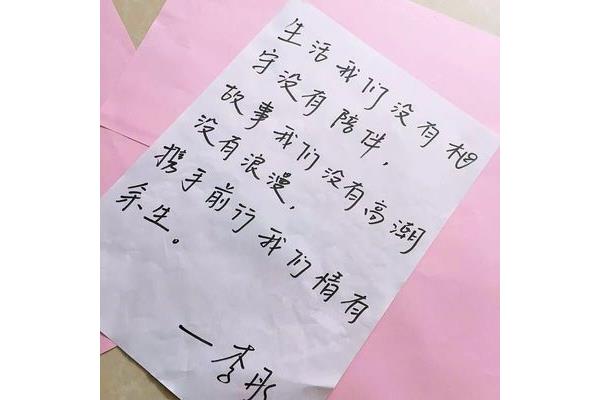 生活我们没有相
守没有陪伴,
故事我们没有高潮
没有浪漫,
携手前行我们情有
余生。
一李彤